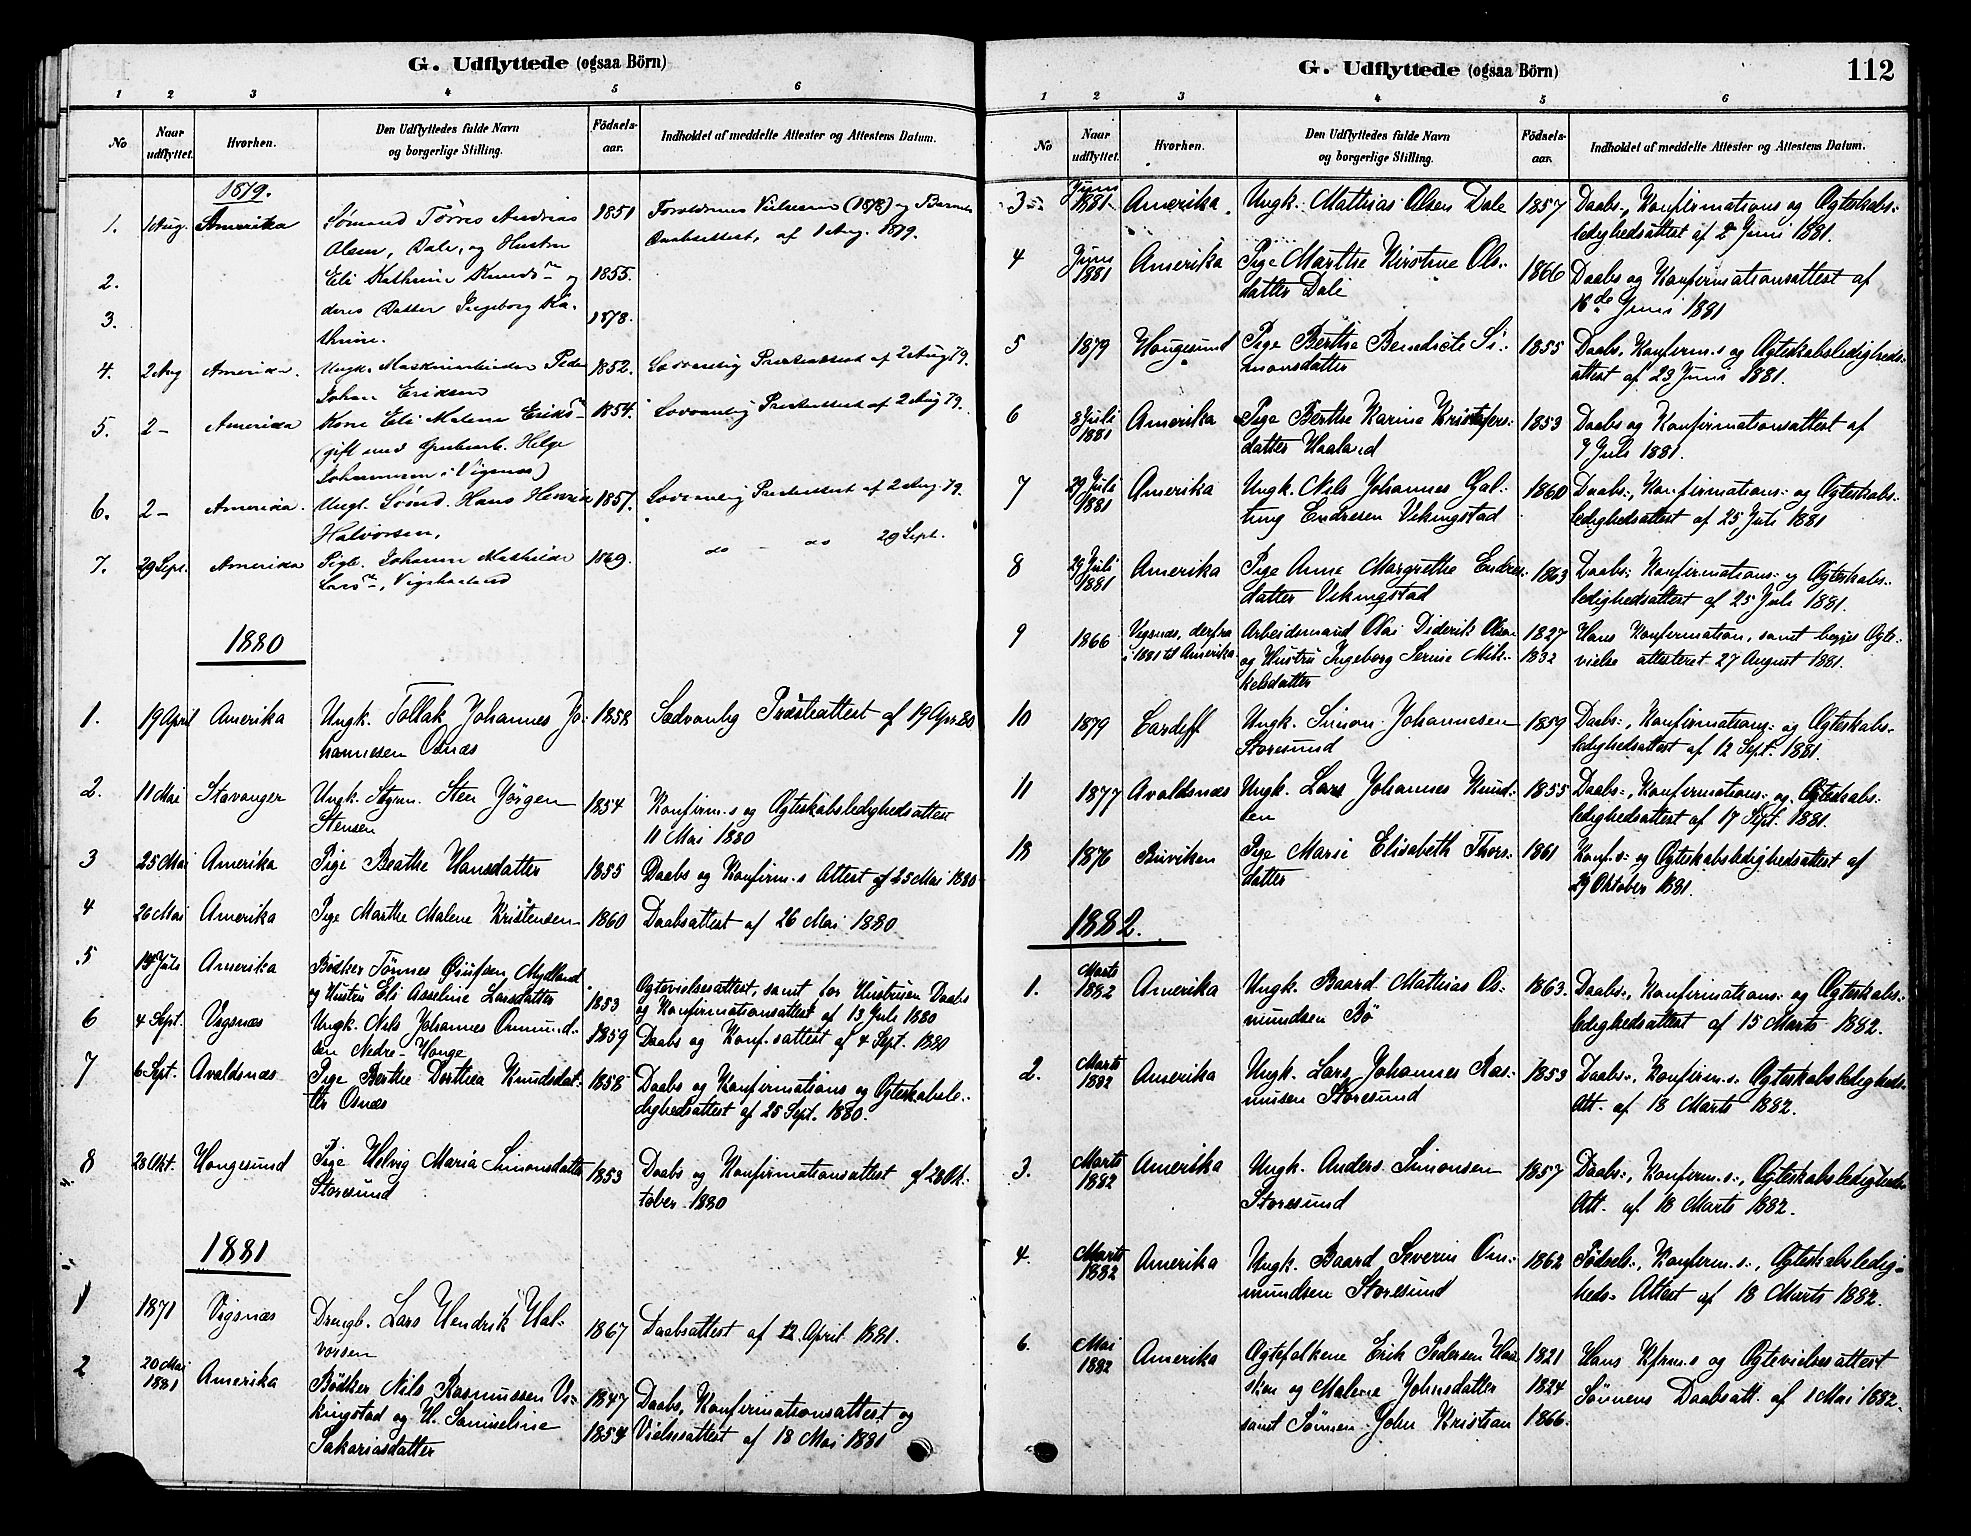 G. Udflyttede (ogsaa Börn)
1 2 3 4 5 6
No Naar udflyttet. Hvorhen. Den Udflyttedes fulde Navn og borgerlige Stilling. Födsels-aar. Indholdet af meddelte Attester og Attestens Datum.
1879.
1. 1 Aug. Amerika Sømand Tørres Andreas 1851 Forældrenes Vielse (1878) og Barnets
Olsen, Dale, og Hustru Daabsattest, af 1 Aug. 1879.
2. Eli Kathrine Knudsd. og 1855.
3. deres Datter Ingeborg Ka- 1878.
thrine.
4. 2 Aug Amerika. Ungk. Peder 1852. Sædvanlig Præsteattest af 2 Aug 79.
Johan Eriksen
5. 2 - Amerika Kone Eli Malene Eriksd. 1854. Sædvanlig Præsteattest af 2 Aug 79.
(gift med Grubearb. Helge
Johannesen i Vigsnæs)
6. 2 - Amerika. Ungk. Sømd. Hans Henrik 1857. Sædvanlig Præsteattest af 2 Aug. 79.
Halvorsen,
7. 29 Sept. Amerika Johanne Mathilde 1869. do - do 29 Sept.
Larsd., Vigshaaland
1880
1. 19 April Amerika Ungk. Tollak Johannes Jo- 1858 Sædvanlig Præsteattest af 19 Apr. 80
hannesen Osnæs
2. 11 Mai Stavanger Ungk. Sten Jörgen 1854 Konfirm.s og Ægteskabsledighedsattest
Stensen 11 Mai 1880
3 25 Mai Amerika Pige Beathe Hansdatter 1855 Daabs og Konfirm.s Attest af 25 Mai 1880
4 26 Mai Amerika Pige Marthe Malene Kristensen 1860 Daabsattest af 26 Mai 1880
5 Juli Amerika Bödker Tönnes Mydland
og Hustru Eli Asseline Larsdatter 1853 Ægtevielsesattest, samt for Hustruen Daabs
og Konfirmationsattest af 13 Juli 1880
6 4 Sept. Vigsnæs Ungk. Nils Johannes Osmund- 1859 Daabs og Konf.sattest af 4 Sept. 1880
sen Nedre-Hauge
7 6 Sept. Avaldsnæs Pige Berthe Dorthea Knudsdat- 1858 Daabs og Konfirmations og Ægteskabsle-
ter Osnæs dighedsattest af 25 Sept. 1880.
8 28 Okt. Haugesund Pige Helvig Maria Simonsdatter 1853 Daabs og Konfirmationsattest af 28 Ok-
Storesund tober 1880
1881
1 1871 Vigsnæs Drengb. Lars Hendrik Hal- 1867 Daabsattest af 12 April 1881.
vorsen
2 20 Mai 1881 Amerika Bödker Nils Rasmussen Vi- 1847 Daabs, Konfirmationsattest og
kingstad og H. Samueline 1854 Vielsesattest af 18 Mai 1881
Sakariasdatter
G. Udflyttede (ogsaa Börn) 112
1 2 3 4 5 6
No Naar udflyttet. Hvorhen. Den Udflyttedes fulde Navn og borgerlige Stilling. Födsels-aar. Indholdet af meddelte Attester og Attestens Datum.
3 Juni 1881 Amerika. Ungk. Mathias Olsen Dale 1857 Daabs-, Konfirmations og Ægteskabs-
ledighedsattest af 2 Juni 1881.
4 Juni 1881 Amerika Pige Marthe Kirstine Ols- 1866 Daabs og Konfirmationsattest af
datter Dale 16de Juni 1881
5 1879 Haugesund Pige Berthe Benedicte Si- 1855 Daabs, Konfirm.s og Ægteskabsledigheds-
monsdatter attest af 23 Juni 1881.
6 8 Juli 1881 Amerika Pige Berthe Karine Kristofers- 1853 Daabs og Konfirmationsattest af
datter Haaland 7 Juli 1881.
7 29 Juli 1881 Amerika Ungk. Nils Johannes Gal- 1860 Daabs-, Konfirmations- og Ægteskabs-
tung Endresen Vikingstad ledighedsattest af 25 Juli 1881
8 29 Juli 1881 Amerika Pige Anne Margrethe Endres- 1863 Daabs- Konfirmations- og Ægteskabs-
datter Vikingstad ledighedsattest af 25 Juli 1881.
9 1866 Vigsnæs, derfra Arbeidsmand Olai Diderik Olsen 1827 Hans Konfirmation, samt begges Ægte-
i 1881 til Amerika. og Hustru Ingeborg Serine Mik- 1832 vielse attesteret 27 August 1881.
kelsdatter
10 1879 Cardiff Ungk. Simon Johannesen 1859 Daabs-, Konfirmations- og Ægteskabs-
Storesund ledighedsattest af 12 Sept. 1881.
11 1877 Avaldsnæs Ungk. Lars Johannes Knud- 1855 Daabs-, Konfirmations- og Ægteskabs-
sen ledighedsattest af 17 Sept. 1881.
1876 Pige Marie Elisabeth Thors- 1861 Konf.s- og Ægteskabsledighedsattest af
datter 29 Oktober 1881.
1882.
1. Marts 1882 Amerika Ungk. Baard Mathias Os- 1863. Daabs-, Konfirmations- og Ægteskabs-
mundsen Bö ledighedsattest af 15 Marts 1882.
2. Marts 1882 Amerika Ungk. Lars Johannes Ras- 1853 Daabs-, Konfirm.s. Ægteskabsledigheds-
musen Storesund Att. af 18 Marts 1882.
3. Marts 1882 Amerika Ungk. Anders Simonsen 1857 Daabs-, Konfirm.s-, Ægteskabsledigheds-
Storesund Att. af 18 Marts 1882.
4. Marts 1882 Amerika Ungk. Baard Severin Os- 1862 Födsels-, Konfirm.s-, Ægteskabsledig-
mundsen Storesund heds- Attest af 18 Marts 1882.
6. Mai 1882 Amerika Ægtefolkene Erik Pedersen 1821 Hans Kfrm.s og Ægtevielsesattest
og Malene Johnsdatter 1824 Sönnens Daabsatt. af 1 Mai 1882.
samt Sönnen John Kristian 1866.